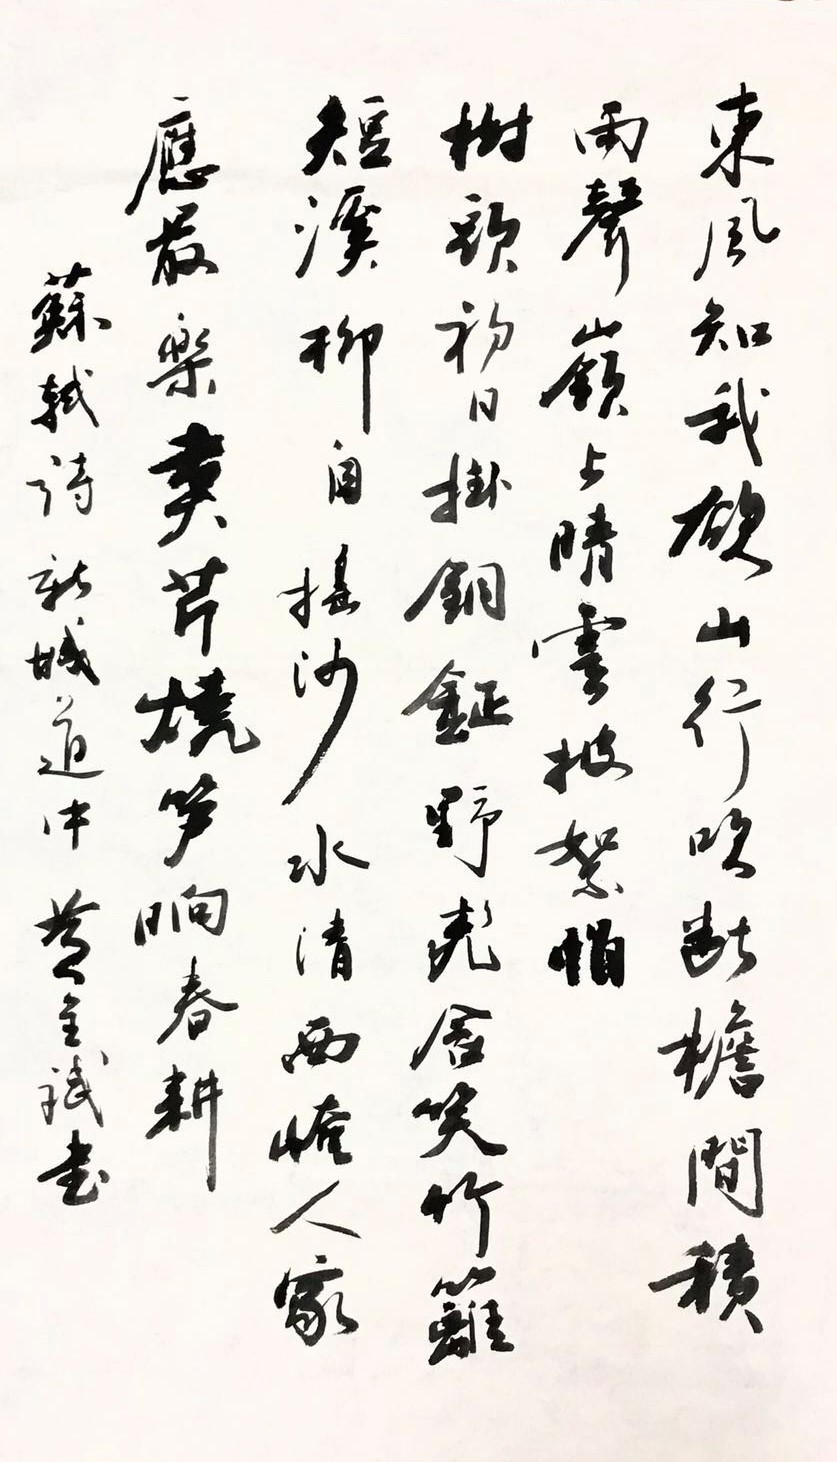 東風知我欲山行吹斷檐間積
雨聲嶺上晴雲披絮帽
樹頭初日掛銅鉦野桃含笑竹籬
短溪柳自搖沙水清西崦人家
應最樂煮芹燒笋晌春耕
蘇軾詩新城道中 黄书